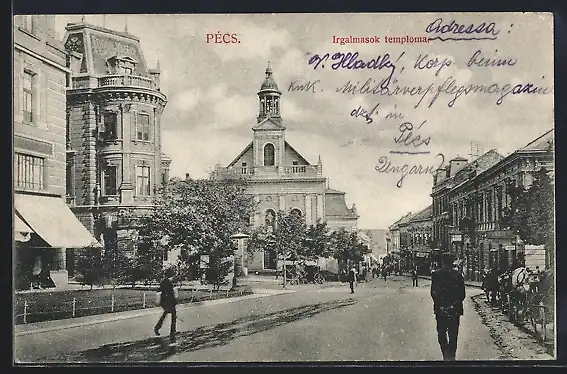 PÉCS.
Irgalmasok temploma.
Adressa:
V. Hladky, Korp. beim
Knk. Militärverpflegsmagazin
in
Pécs
Ungarn